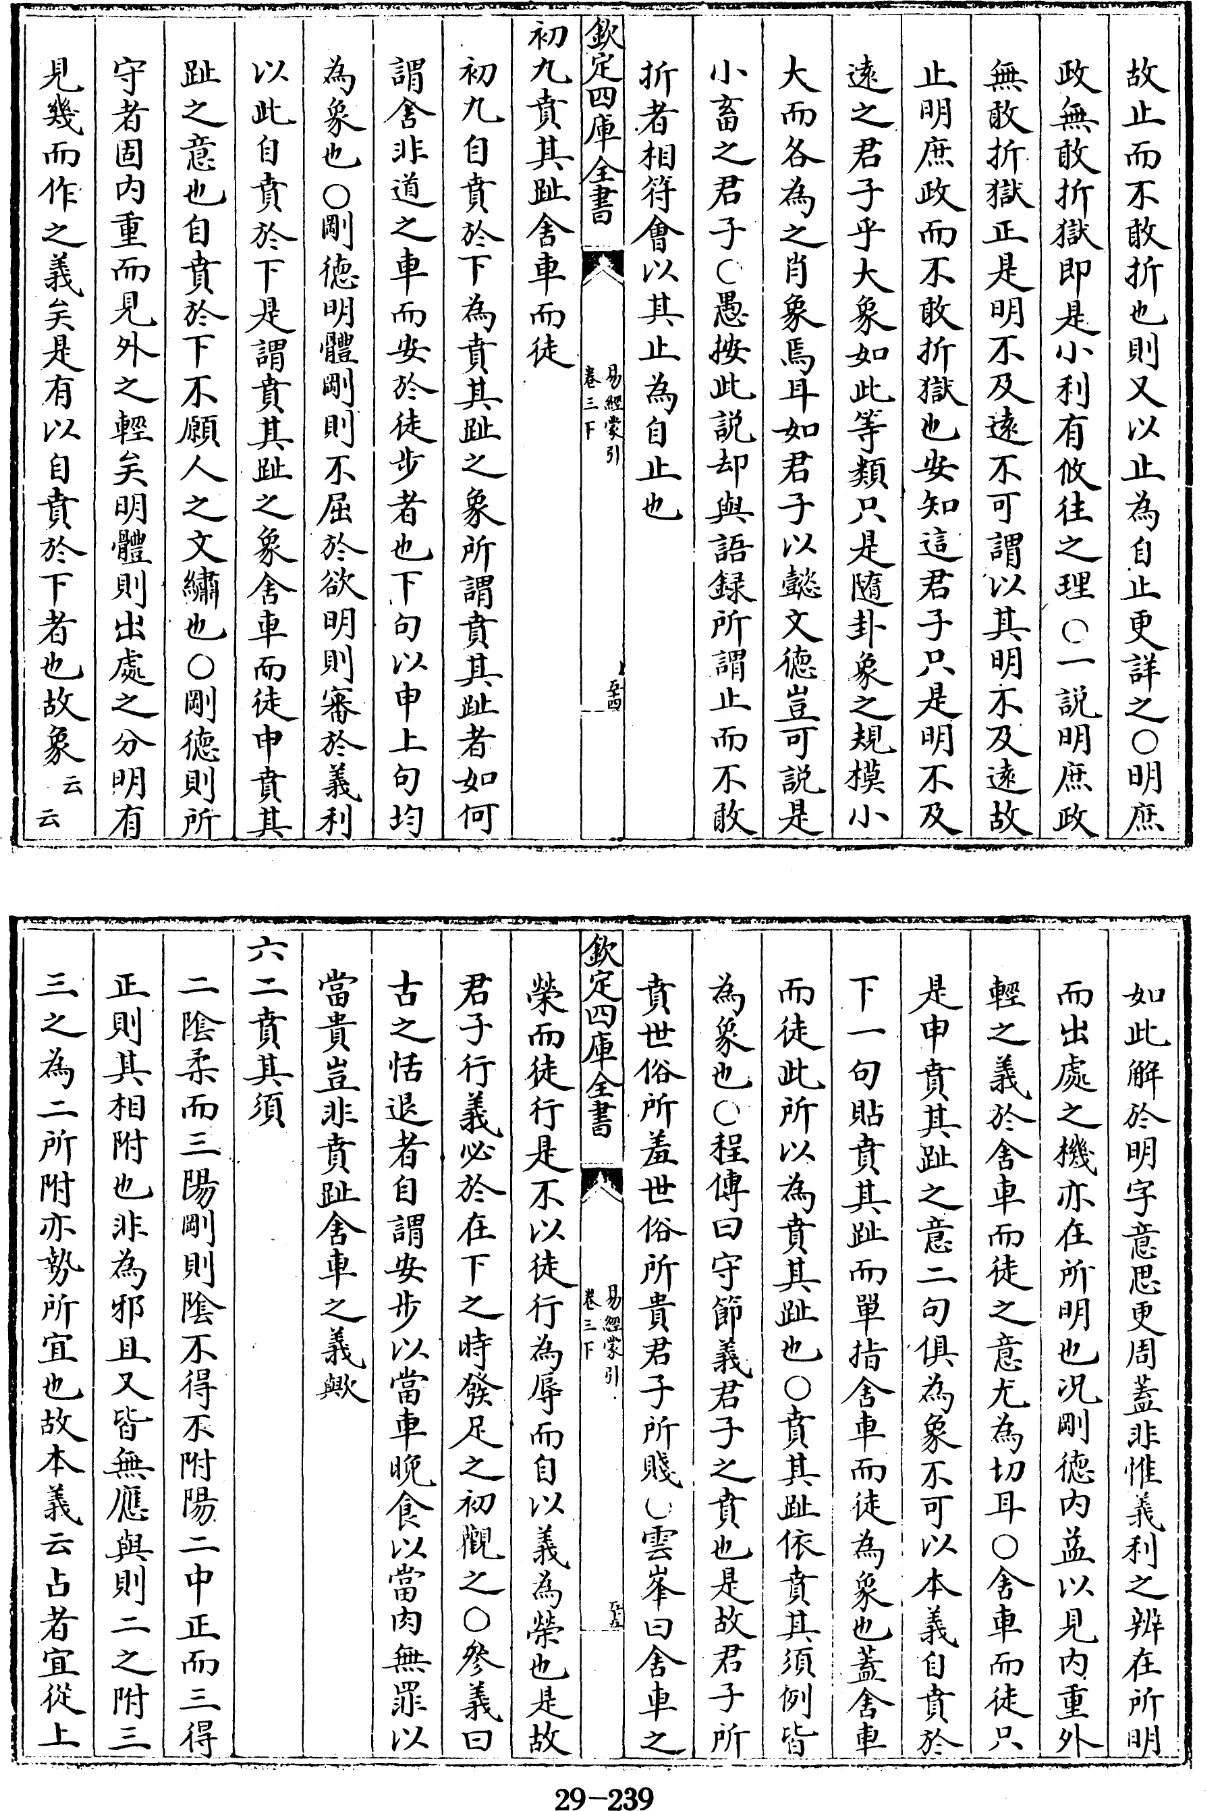 故止而不敢折也則又以止為自止更詳之○明庶
政無敢折獄即是小利有攸往之理○一說明庶政
無敢折獄正是明不及遠不可謂以其明不及遠故
止明庶政而不敢折獄也安知這君子只是明不及
遠之君子乎大象如此等類只是隨卦象之規模小
大而各為之肖象焉耳如君子以懿文德豈可說是
小畜之君子○愚按此說却與語録所謂止而不敢
折者相符會以其止為自止也
欽定四庫全書
易經蒙引
卷三下
五十四
初九賁其趾舍車而徒
初九自賁於下為賁其趾之象所謂賁其趾者如何
謂舍非道之車而安於徒步者也下句以申上句均
為象也○剛德明體剛則不屈於欲明則審於義利
以此自賁於下是謂賁其趾之象舍車而徒申賁其
趾之意也自賁於下不願人之文繡也○剛德則所
守者固内重而見外之輕矣明體則出處之分明有
見幾而作之義矣是有以自賁於下者也故象云云
如此解於明字意思更周蓋非惟義利之辨在所明
而出處之機亦在所明也况剛德内益以見内重外
輕之義於舍車而徒之意尤為切耳○舍車而徒只
是申賁其趾之意二句俱為象不可以本義自賁於
下一句貼賁其趾而單指舍車而徒為象也蓋舍車
而徒此所以為賁其趾也○賁其趾依賁其須例皆
為象也○程傳曰守節義君子之賁也是故君子所
賁世俗所羞世俗所貴君子所賤○雲峯曰舍車之
欽定四庫全書
易經蒙引
卷三下
五十五
榮而徒行是不以徒行為辱而自以義為榮也是故
君子行義必於在下之時發足之初觀之○參義曰
古之恬退者自謂安步以當車晚食以當肉無罪以
當貴豈非賁趾舍車之義歟
六二賁其須
二陰柔而三陽剛則陰不得不附陽二中正而三得
正則其相附也非為邪且又皆無應與則二之附三
三之為二所附亦勢所宜也故本義云占者宜從上
29-239